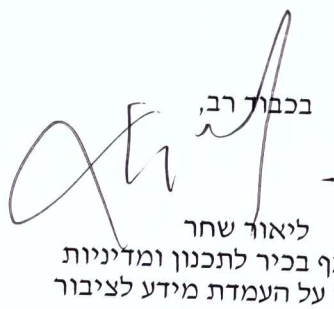 בכבוד רב,
ליאור שחר
בכיר לתכנון ומדיניות
על העמדת מידע לציבור